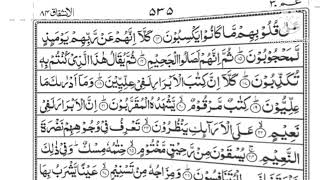 عـم ٣٠ ٥٣٥ الانشقاق ٨٤
عَلٰى قُلُوْبِهِمْ مَّا كَانُوْا يَكْسِبُوْنَ ۝ كَلَّآ اِنَّهُمْ عَنْ رَّبِّهِمْ يَوْمَئِذٍ
لَّمَحْجُوْبُوْنَ ۝ ثُمَّ اِنَّهُمْ لَصَالُوا الْجَحِيْمِ ۝ ثُمَّ يُقَالُ هٰذَا الَّذِيْ كُنْتُمْ بِهٖ
تُكَذِّبُوْنَ ۝ كَلَّآ اِنَّ كِتٰبَ الْاَبْرَارِ لَفِيْ عِلِّيِّيْنَ ۝ وَمَآ اَدْرٰىكَ مَا
عِلِّيُّوْنَ ۝ كِتٰبٌ مَّرْقُوْمٌ ۝ يَّشْهَدُهُ الْمُقَرَّبُوْنَ ۝ اِنَّ الْاَبْرَارَ لَفِيْ
نَعِيْمٍ ۝ عَلَى الْاَرَآئِكِ يَنْظُرُوْنَ ۝ تَعْرِفُ فِيْ وُجُوْهِهِمْ نَضْرَةَ
النَّعِيْمِ ۝ يُسْقَوْنَ مِنْ رَّحِيْقٍ مَّخْتُوْمٍ ۝ خِتٰمُهٗ مِسْكٌ ۗ وَفِيْ ذٰلِكَ
الْمُتَنَافِسُوْنَ ۝ وَمِزَاجُهٗ مِنْ تَسْنِيْمٍ ۝ عَيْنًا يَّشْرَبُ بِهَا